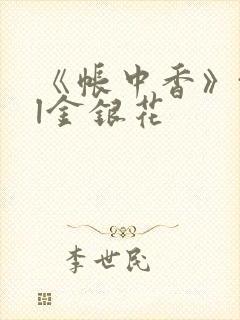 《帐中香》
金银花
李世民